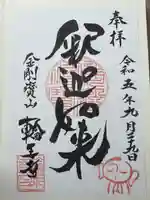 奉拝
令和五年九月二十九日
釈迦如来
金剛寳山
輪王寺